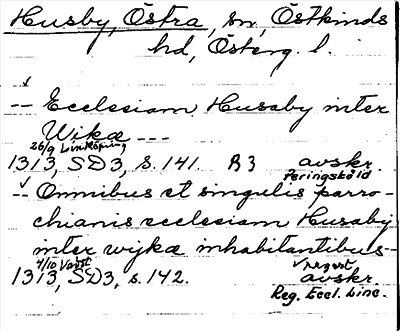 Husby, Östra, sn, Östkinds
hd, Österg. l.
-- Ecclesiam Husaby inter
Wika ---
26/9 Linköping
1313, SD3, s. 141. B3 avskr.
Peringskiöld
-- Omnibus et singulis parro-
chianis ecclesiam Husaby
inter wijka inhabitantibus--
4/10
1313, SD3, s. 142. avskr.
Reg. Eccl. Linc.